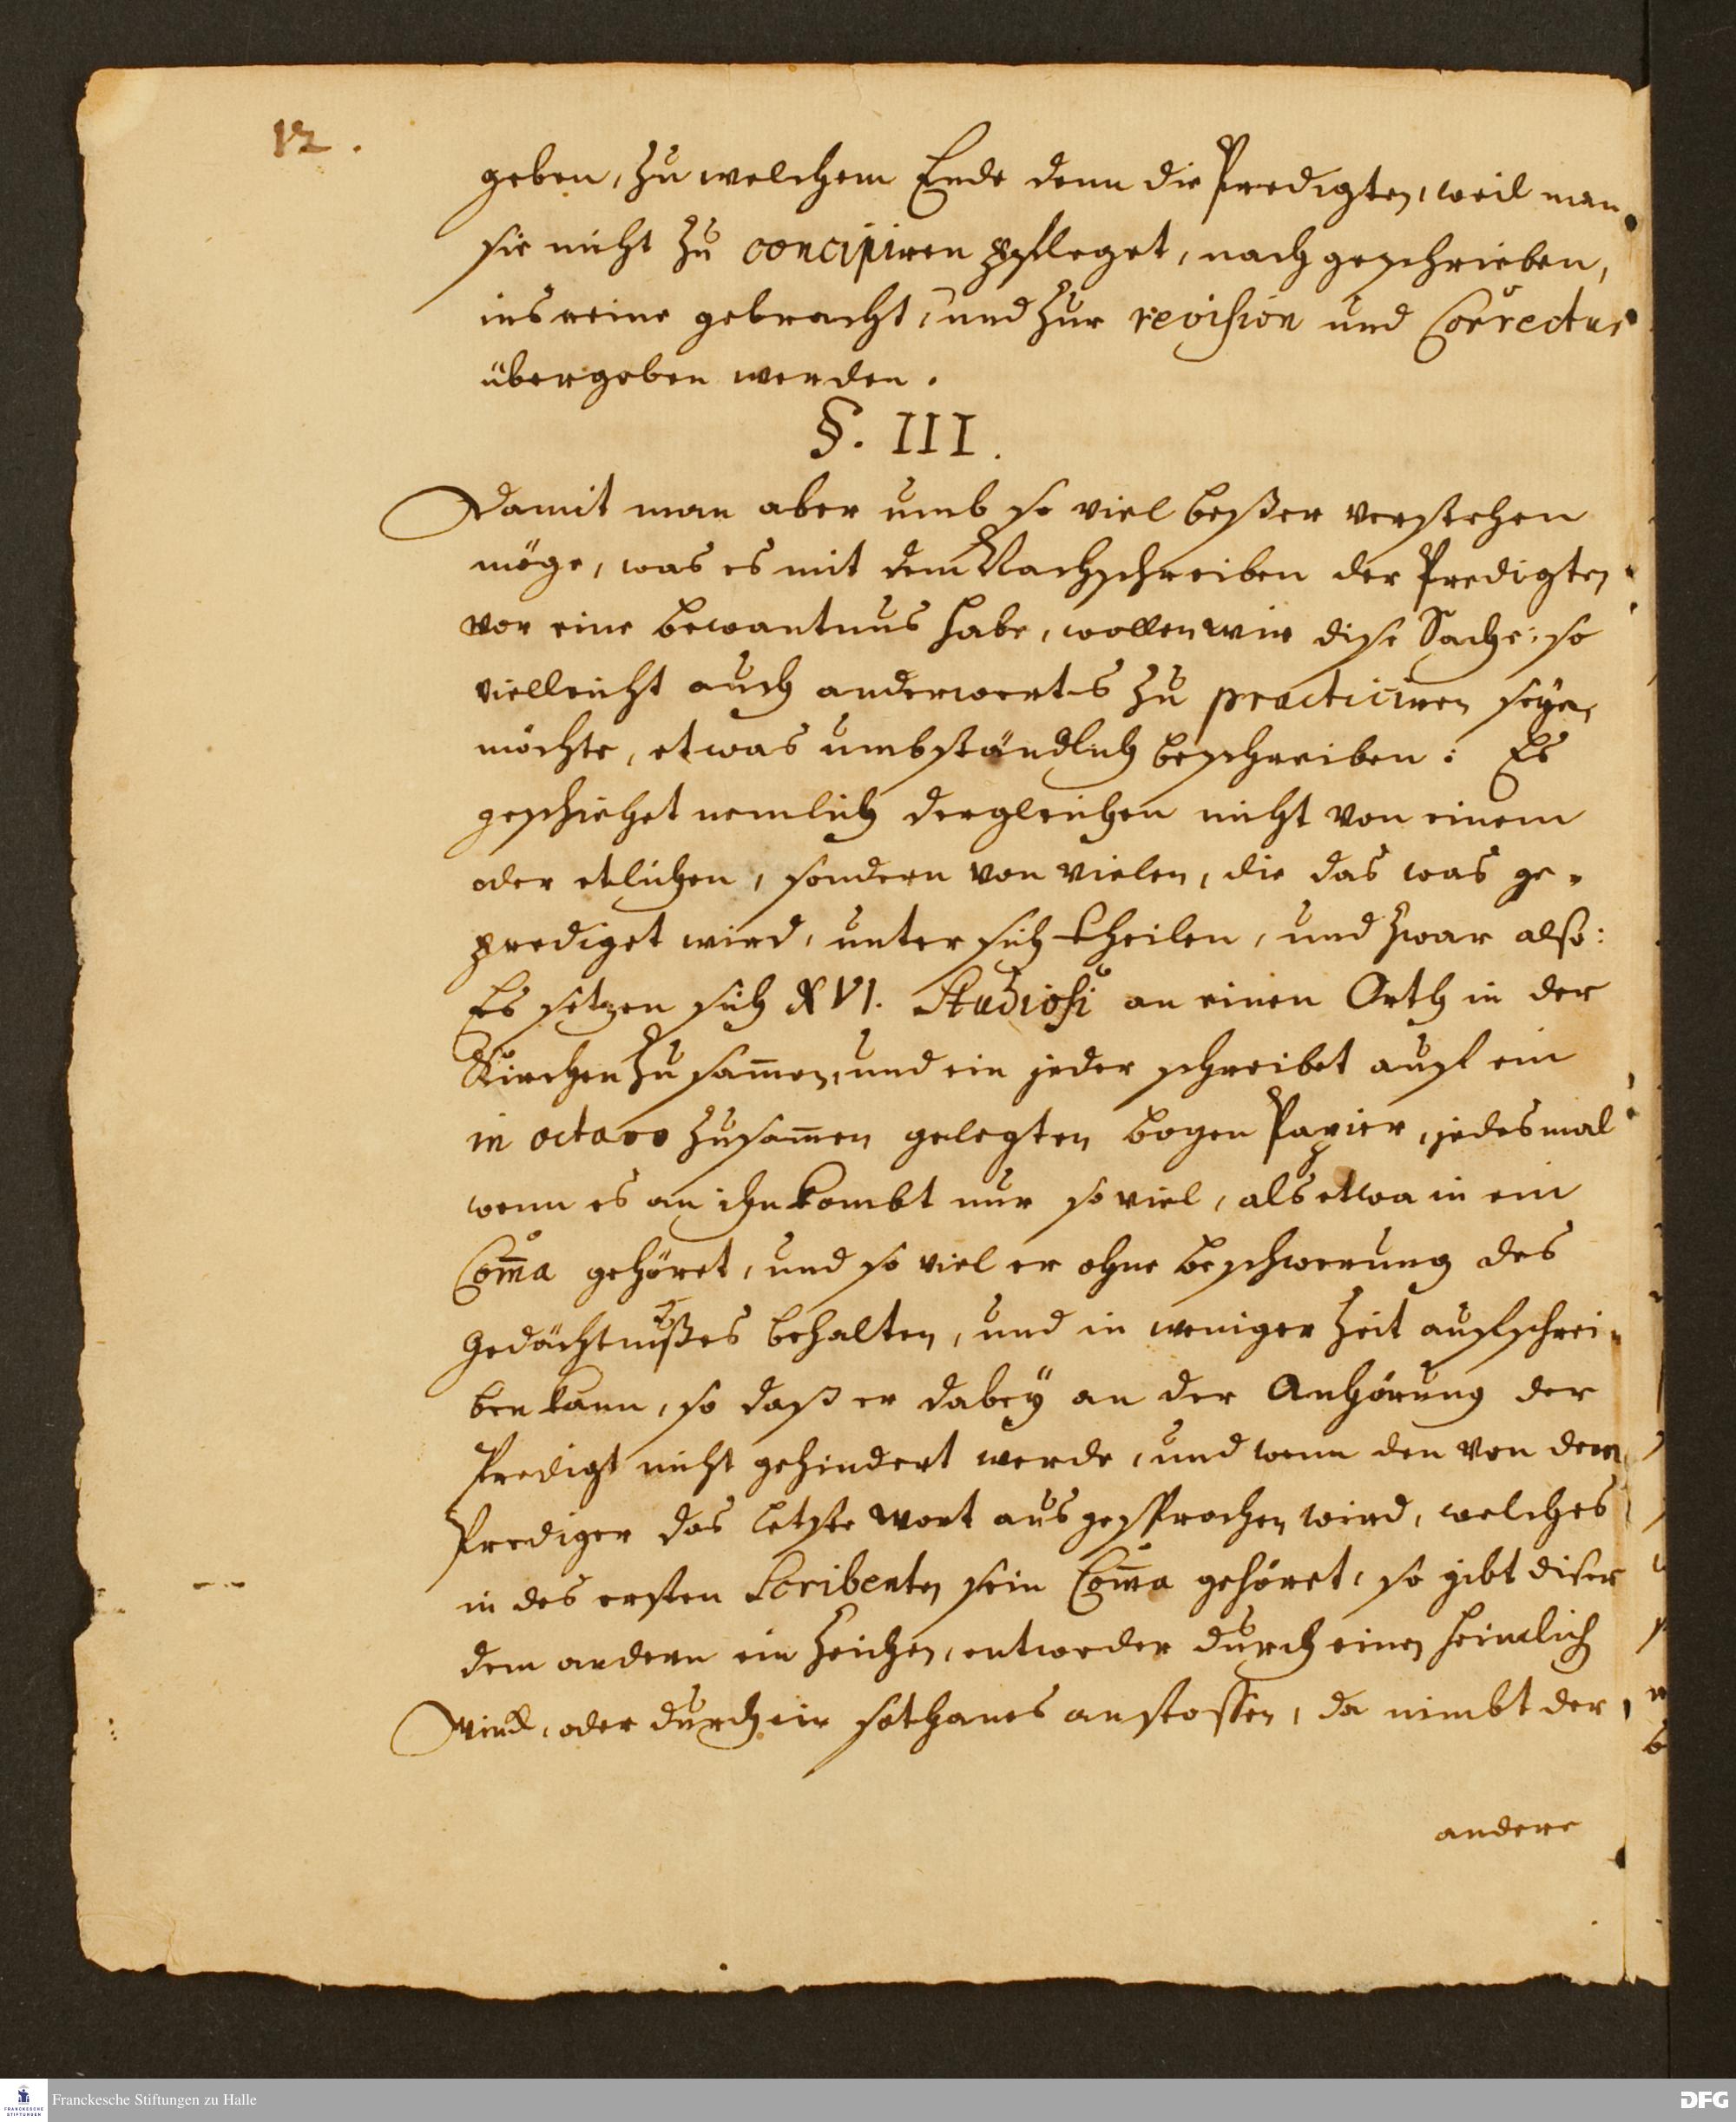 12.
geben, zu welchem Ende denn die Predigten, weil man
sie nicht zu concipiren pfleget, nach geschrieben,
ins reine gebracht, und zur revision und Correctur
übergeben werden.
§. III.
Damit man aber umb so viel beßer verstehen
möge, was es mit dem Nachschreiben der Predigten
vor eine bewantnus habe, wollen wir dise Sache, so
vielleicht auch anderwerts zu practiciren seyn
möchte, etwas umbständlich beschreiben: Es
geschiehet nemlich dergleichen nicht von einem
oder etlichen, sondern von vielen, die das was ge-
prediget wird, unter sich theilen, und zwar also:
Es setzen sich XVI. Studiosi an einen Orth in der
Kirchen zusam̅en, und ein jeder schreibet auff ein
in octavo zusam̅en gelegten bogen Papier, jedesmal
wenn es an ihn kombt nur so viel, als etwa in ein
Com̅a gehöret, und so viel er ohne beschwerung des
Gedächtnußes behalten, und in weniger Zeit auffschrei-
ben kann, so daß er dabey an der Anhörung der
Predigt nicht gehindert werde, und wenn den von dem
Prediger das letzte Wort ausgesprochen wird, welches
in des ersten Scribenten sein Com̅a gehöret, so gibt diser
dem andern ein Zeichen, entweder durch einen heimlich
Winck, oder durch ein sothanes anstossen, da nimbt der
andere
Franckesche Stiftungen zu Halle
DFG